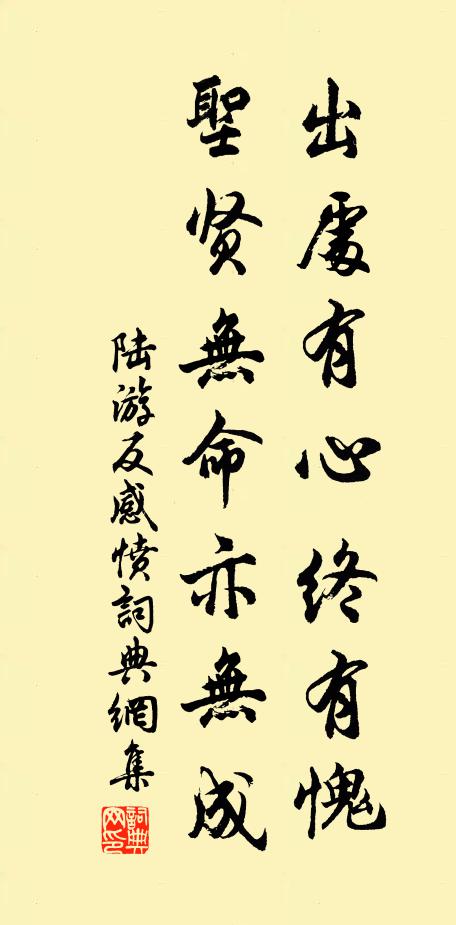 出處有心終有愧
聖贤無命亦無成
陆游反感愤詞典網集
詞典网印